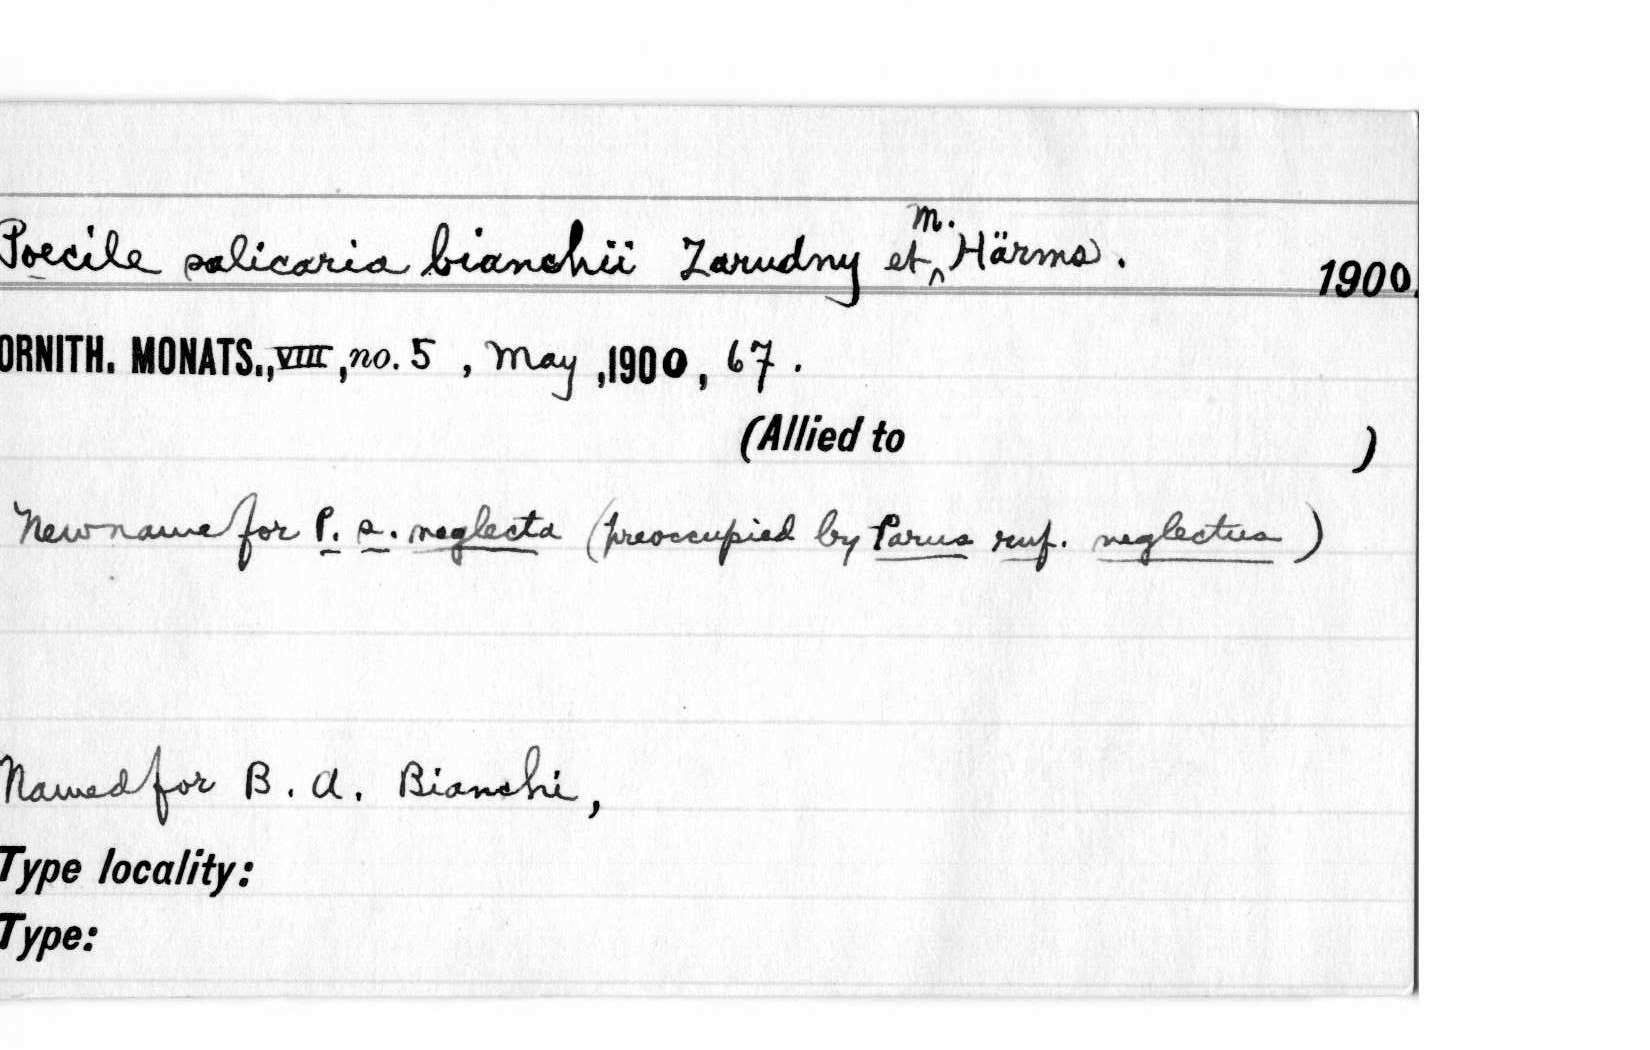 Poecile salicaria bianchii Zarudny et m. Härms. 1900.
ORNITH. MONATS., VIII, no. 5, May, 1900, 67.
(Allied to )
New name for P. s. neglecta (preoccupied by Parus ruf. neglectus)
Named for B. A. Bianchi,
Type locality:
Type: